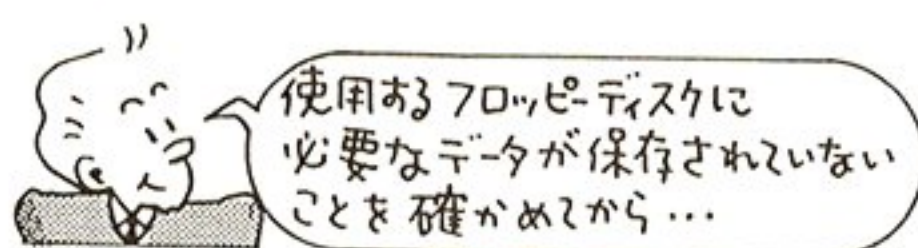 使用するフロッピーディスクに
必要なデータが保存されていない
ことを確かめてから…